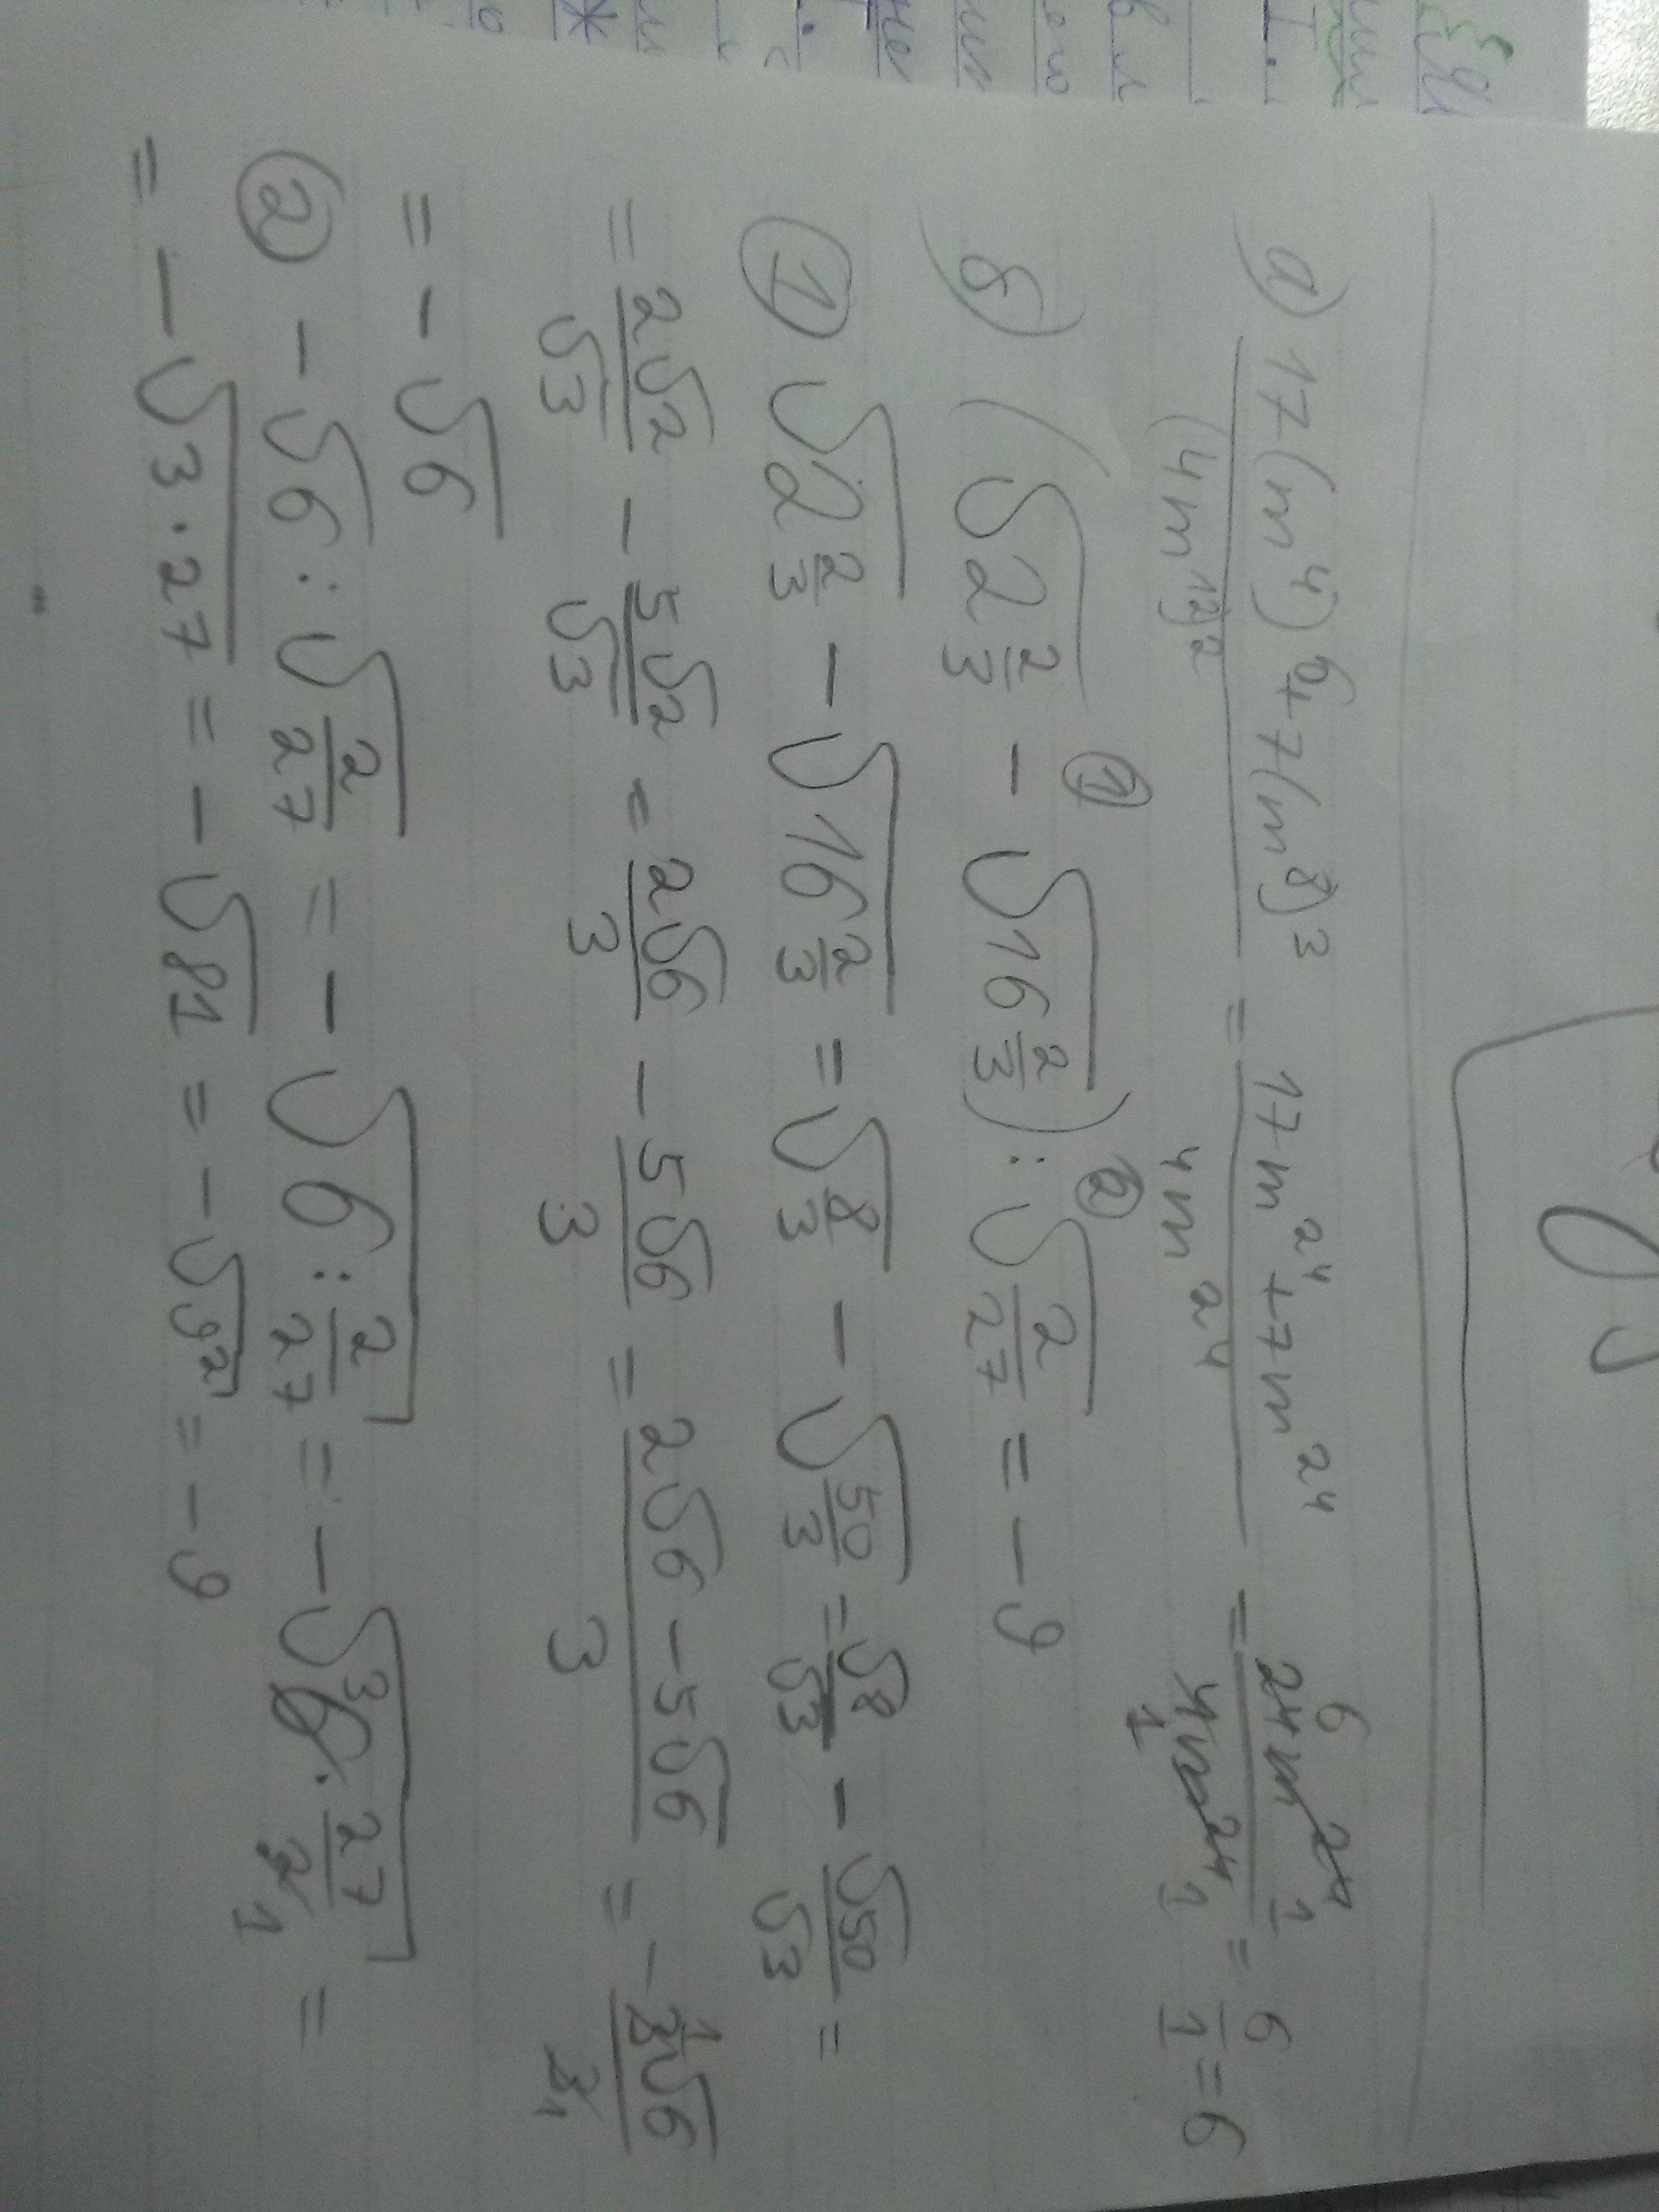 а) 17(m⁴)⁶+7(m⁸)³ / (4m¹²)² = 17m²⁴+7m²⁴ / 4m²⁴ = 24m²⁴ / 4m²⁴ = 6/1 = 6
б) (√2 2/3 - √16 2/3) : √2/27 = -9
① √2 2/3 - √16 2/3 = √8/3 - √50/3 = √8/√3 - √50/√3 =
= 2√2/√3 - 5√2/√3 = 2√6/3 - 5√6/3 = 2√6-5√6/3 = - 3√6/3
= -√6
② -√6 : √2/27 = -√6 : 2/27 = -√6 · 27/2 =
= -√3·27 = -√81 = -√9² = -9